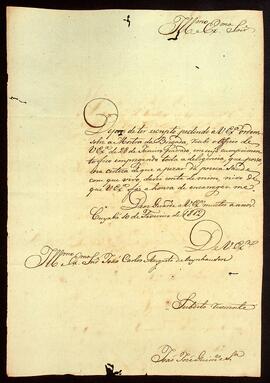 Illmo. e Exmo. Snr.
Depois de ter escripto pedindo a V.Exa. ordem
sobre a Mostra da Brigada, recebi o Officio de
V.Exa. de 28 de Janeiro, em cujo cumprimento
fico empregando toda a deligencia, que posso
na certeza de que a pezar da pouca Saude
com que vivo, deve contar de mim
que V.Exa. a honra de encarregar-me
Deos Guarde a V.Exa. muitos annos
Cuyabá 10 de Fevereiro de 1812
De V.Exa.
Illmo. e Exmo. Snr. João Carlos Augusto de Oeynhausen
Subdito
João José Guimes. e Sa.